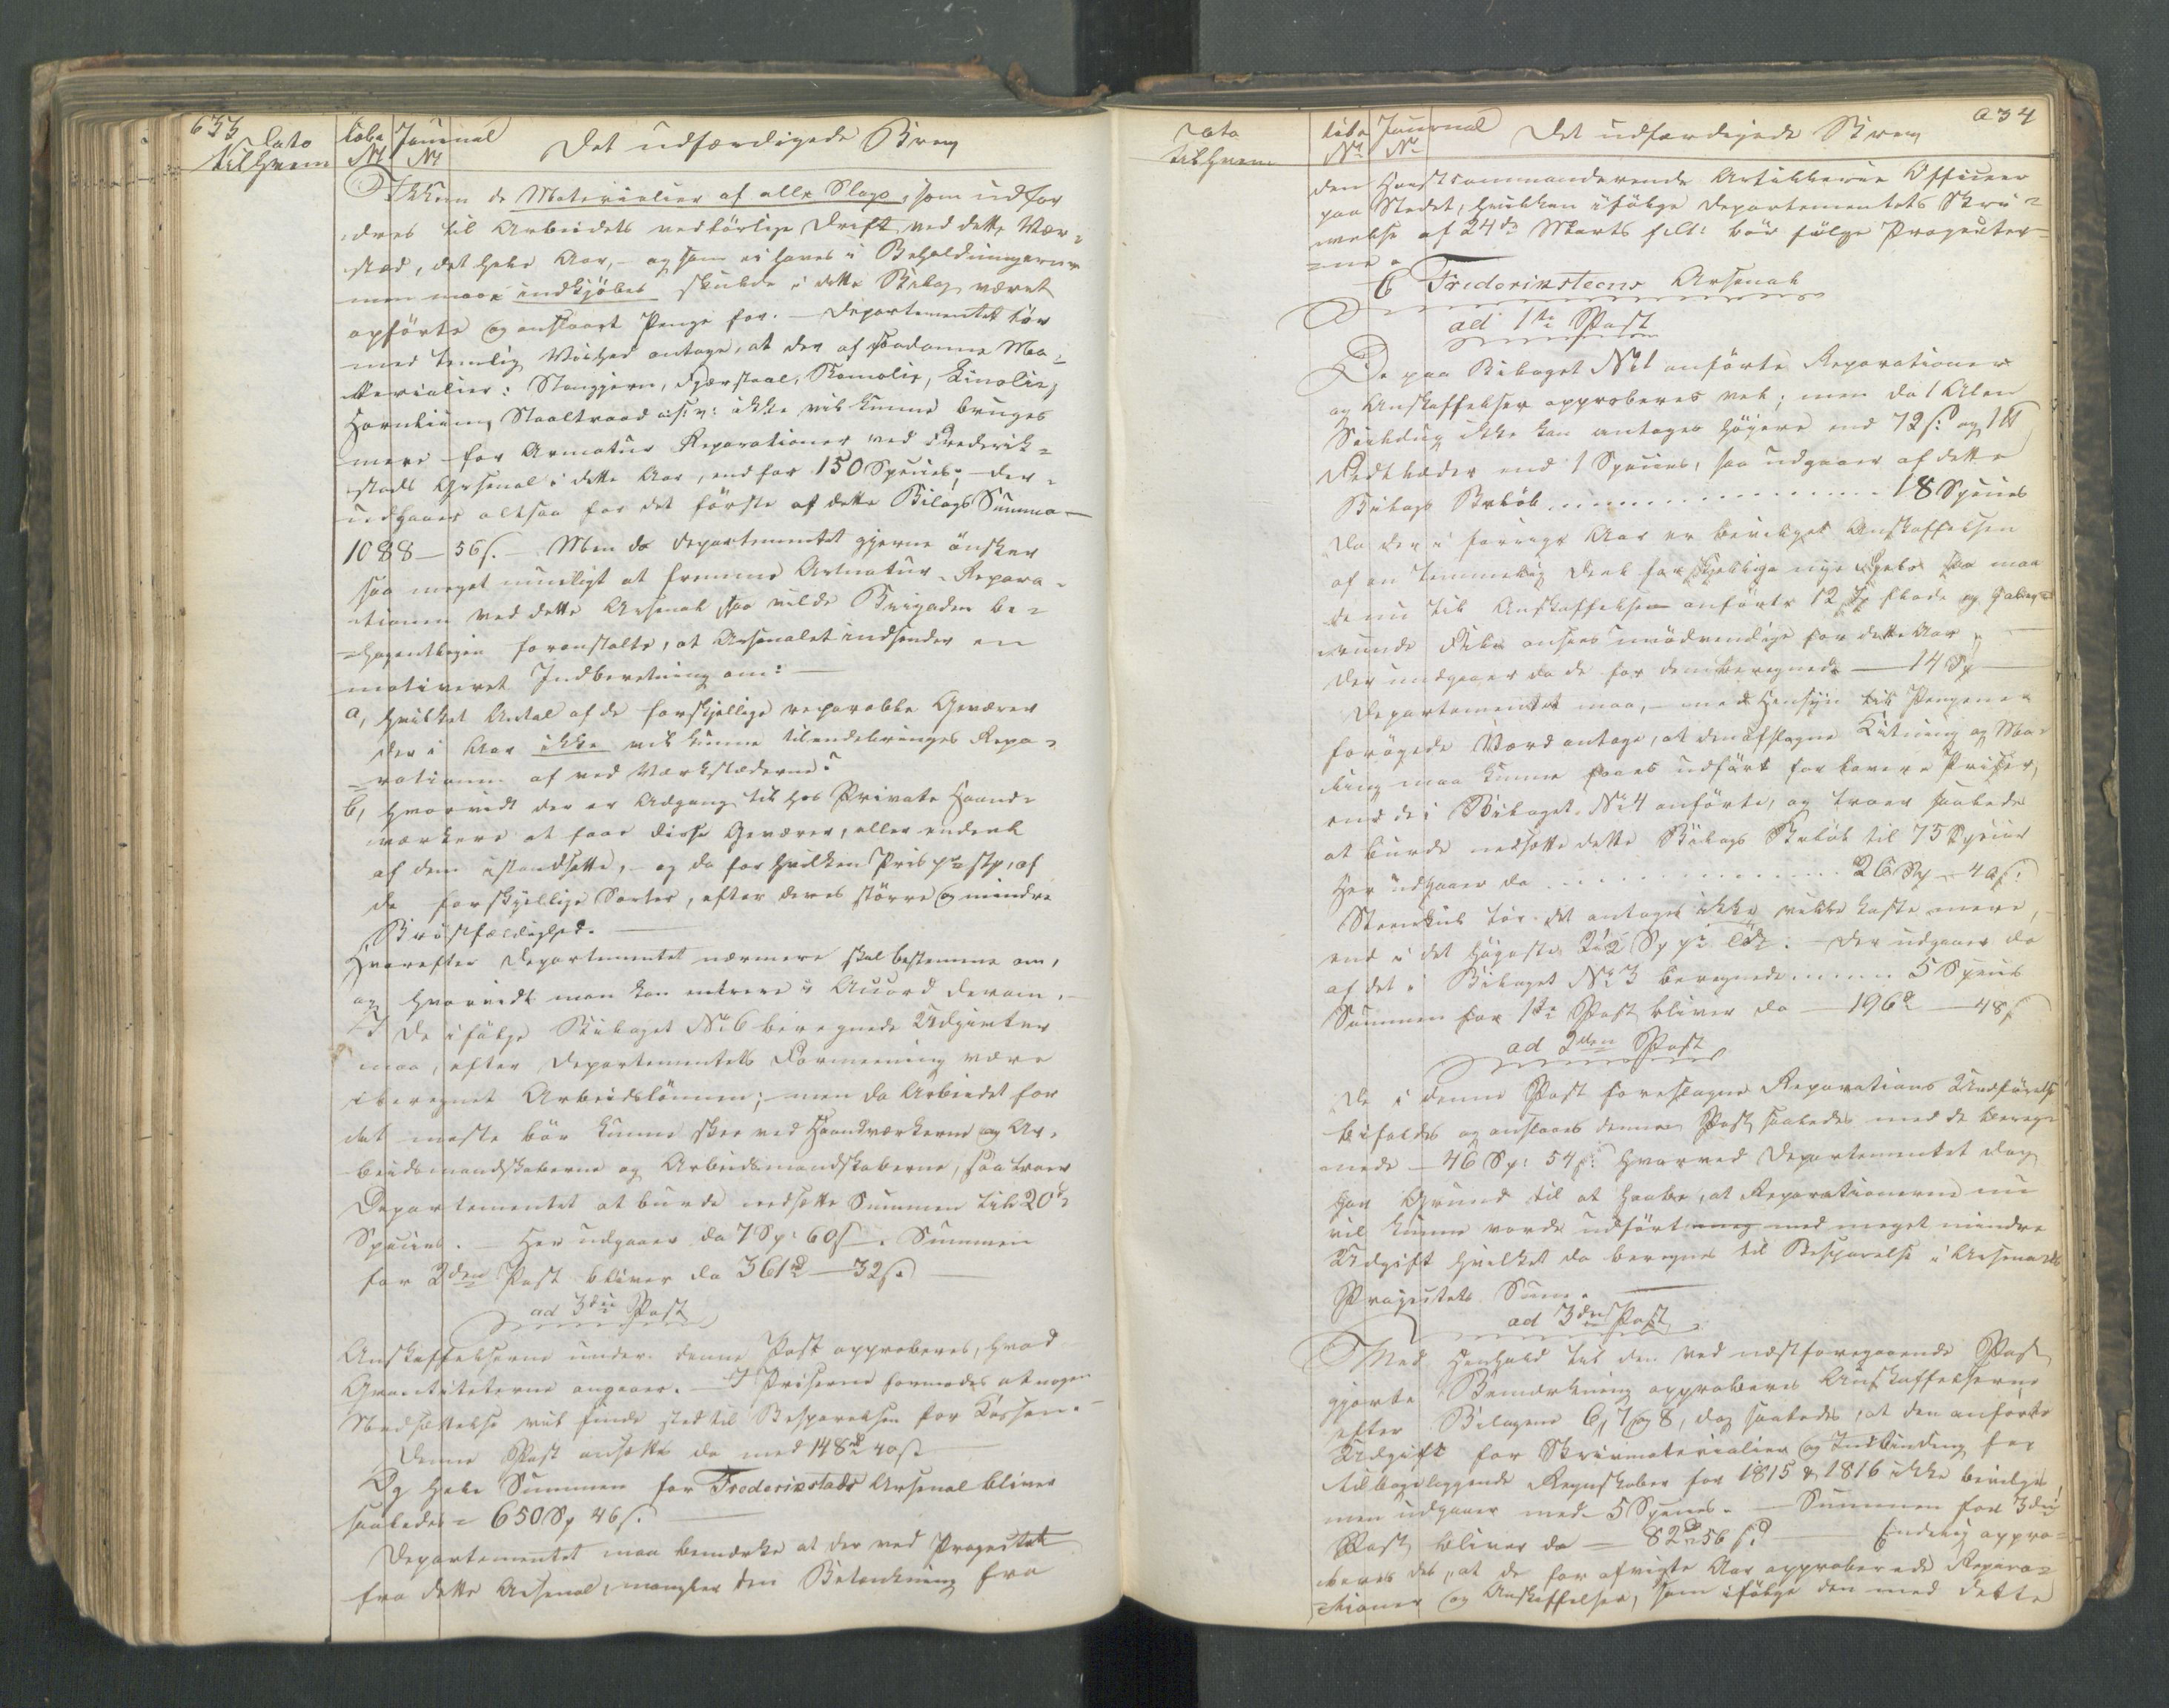 633
Dato
tilhvem
Løbe
No
Journal
No
Det udfærdigede Brev
Ikkun de Materialier af alle Slags, som udfor
dres til Arbeidets vedbörlige Drift ved dette Vær-
sted, det hele Aar, - og som ei haves i Beholdningerne
men maae indkjöbes skulde i dette Bilag været
opförte og anslaaet Penge for. - Departementet tör
med temlig Vished antage, at der af saadanne Ma-
terialier: Stangjern, Fjærstaal, Bomolie, Linolie,
Hornlium, Staaltraad o: s: v: ikke vil kunne bruges
mere for Armatur Reparationer ved Frederik-
stads Arsenal i dette Aar, end for 150 Species; - der
udgaaer altsaa for det förste af dette Bilags Summa -
1088 - 56 s. - Men da Departementet gjerne önsker
saa meget mueligt at fremme Armatur-Repara-
tionen ved dette Arsenal, saa vilde Brigaden be-
hagentligen foranstalte, at Arsenalet indsender en
motiveret Indberetning om: -
a, hvilket Antal af de forskjellige reparable Geværer
der i Aar ikke vil kunne tilendebringes Repa-
rationen af ved Værkstæderne?
b, hvorvidt der er Adgang til hos Private Haand-
værkere at faae disse Geværer, eller endeel
af dem istandsatte, - og da for hvilken Pris pr stk, af
de forskjellige Sorter, efter deres större og mindre
Bröstfældighed. -
Hvorefter Departementet nærmere skal bestemme om,
og hvorvidt man kan entrere i Accord derom. -
I de ifölge Bilaget No 6 beregnede Udgivter
maa, efter Departementets Formeening være
iberegnet Arbeidslönnen; men da Arbeidet for
det meste bör kunne skee ved Haandværkerne og Ar-
beidsmandskaberne og Arbeidsmandskaberne, saa troer
Departementet at burde nedsætte Summen til 20
Species. - Her udgaaer da 7 Sp: 60 s. Summen
for 2den Post bliver da 361 - 32 s. -
ad 3die Post
Anskaffelserne under denne Post approberes, hvad
Qvantiteterne angaaer. - I Priserne formodes at nogen
Nedsættelse vil finde sted til Besparelsen for Kassen. -
Denne Post ansættes da med 148 40 s
Og hele Summen for Frederikstads Arsenal bliver
saaledes = 650 Sp 46 s. -
Departementet maa bemærke at der ved Projectet
fra dette Arsenal, mangler den Betænkning fra
Dato
tilhvem
Löbe
No
Journal
No
Det udfærdigede Brev
634
den Höistcommanderende Artillerie Officeer
paa Stedet, hvilken ifölge Departementets Skri-
velse af 24de Marts f: A: bör fölge Projecter-
ne.
C Frederiksteens Arsenal
ad 1te Post
De paa Bilaget No 1 anförte Reparationer
og Anskaffelser approberes vel; men da 1 Alen
Seildug ikke kan antages höiere end 72 s: og 1 lb
Fedtlæder end 1 Species, saa udgaaer af dette
Bilags Belöb . . . . . . . . . . 18 Species
Da der i forrige Aar er bevilget Anskaffelsen
af en temmelig Deel forskjellige nye File saa maa
de nu til Anskaffelsen anförte 12 st flade og halv
runde File ansees unödvendige for dette Aar;
der undgaaer da de for dem beregnede - 14 Sp
Departementet maa, - med Hensyn til Pengenes
forögede Værd antage, at den afslagne Kitning og Ma-
ling maa kunne faaes udfört for lavere Priser,
end de i Bilaget No 4 anförte, og troer saaledes
at burde nedsætte dette Bilags Belöb til 75 Species
Her udgaaer da . . . . . . . . 26 Sp - 40 s:
Steenkul tör det antages ikke ville koste mere,
end i det höieste 2 1/2 Sp pr - Der udgaaer da
af det i Bilaget No 3 beregnede . . . . . 5 Species
Summen for 1te Post bliver da - 196 - 48 s
ad 2den Post
De i denne Post foreslagne Reparations Udförelse
bifaldes og ansaaes denne Post saaledes med de bereg-
nede - 46 Sp: 54 s: hvorved Departementet dog
har Grund til at haabe, at Reparationerne nu
vil kunne vorde udfört med meget mindre
Udgift hvilket da beregnes til Besparelse i Arsenalets
Projectets Sum. -
ad 3die Post
Med Henhold til den ved næstforegaaende Post
gjorte Bemærkning approberes Anskaffelserne
efter Bilagene 6, 7 og 8, dog saaledes, at den anförte
Udgift for Skrivmaterialier og Indbinding for
tilbageliggende Regnskaber for 1815 & 1816 ikke bevilges
men udgaaer med 5 Species. - Summen for 3die
Post bliver da = 82 56 s. Endelig appro-
beres det, at de for afvigte Aar approberede Repara-
tioner og Anskaffelser, som ifölge den med dette